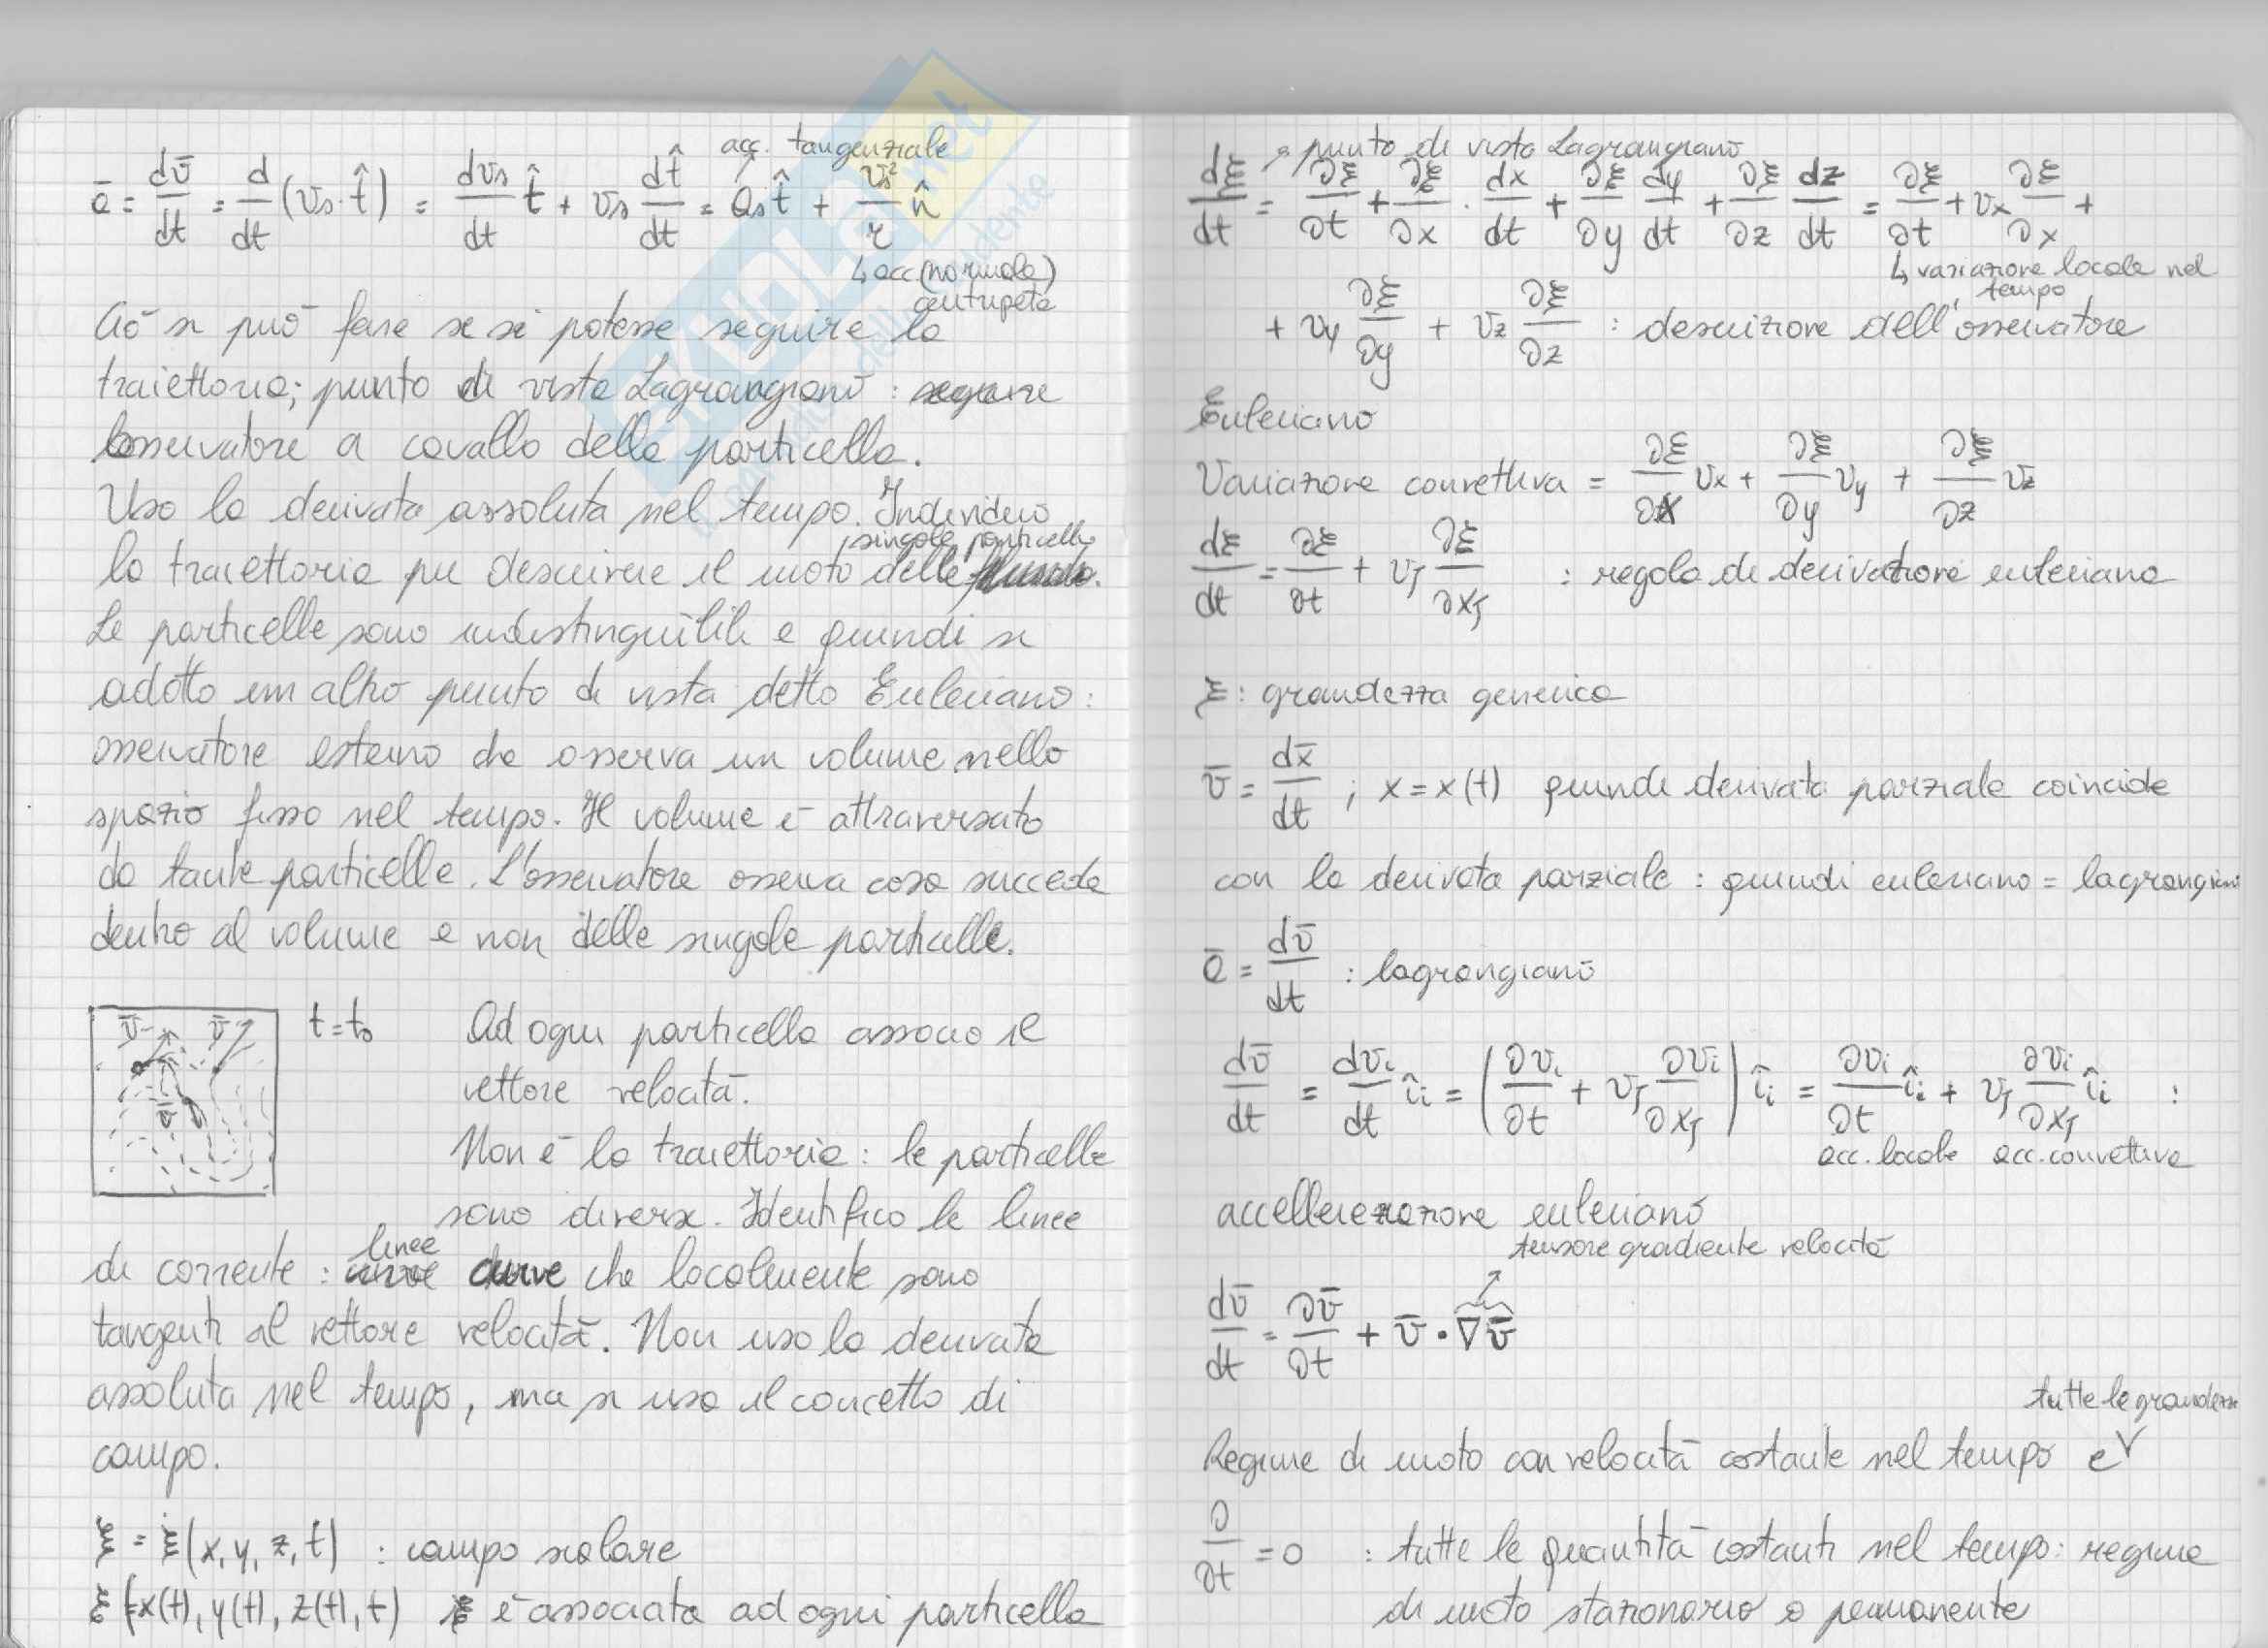 ā = dv̄/dt = d/dt (vs · t̂) = dvs/dt t̂ + vs dt̂/dt = as t̂ + vs²/r n̂
acc. tangenziale
↳ acc (normale) centripeta
Ciò si può fare se si potesse seguire la
traiettoria; punto di vista Lagrangiano :
l'osservatore a cavallo della particella.
Uso la derivata assoluta nel tempo. Individuo
singole particelle
la traiettoria per descrivere il moto delle
Le particelle sono indistinguibili e quindi si
adotta un altro punto di vista detto Euleriano :
osservatore esterno che osserva un volume nello
spazio fisso nel tempo. Il volume è attraversato
da tante particelle. L'osservatore osserva cosa succede
dentro al volume e non delle singole particelle.
v̄ v̄ v̄
t=t₀ Ad ogni particella associo il
vettore velocità.
Non è la traiettoria : le particelle
sono diverse. Identifico le linee
di corrente : linee curve che localmente sono
tangenti al vettore velocità. Non uso la derivata
assoluta nel tempo, ma si usa il concetto di
campo.
ξ = ξ(x, y, z, t) : campo scalare
ξ(x(t), y(t), z(t), t) ξ è associata ad ogni particella
punto di vista Lagrangiano
dξ/dt = ∂ξ/∂t + ∂ξ/∂x · dx/dt + ∂ξ/∂y dy/dt + ∂ξ/∂z dz/dt = ∂ξ/∂t + vx ∂ξ/∂x +
↳ variazione locale nel tempo
+ vy ∂ξ/∂y + vz ∂ξ/∂z : descrizione dell'osservatore
Euleriano
Variazione convettiva = ∂ξ/∂x vx + ∂ξ/∂y vy + ∂ξ/∂z vz
dξ/dt = ∂ξ/∂t + vj ∂ξ/∂xj : regola di derivazione euleriana
ξ : grandezza generica
v̄ = dx̄/dt ; x = x(t) quindi derivata parziale coincide
con la derivata parziale : quindi euleriano = lagrangiano
ā = dv̄/dt : lagrangiano
dv̄/dt = dvi/dt îi = (∂vi/∂t + vj ∂vi/∂xj) îi = ∂vi/∂t îi + vj ∂vi/∂xj îi :
acc. locale acc. convettiva
accellerazione euleriano
tensore gradiente velocità
dv̄/dt = ∂v̄/∂t + v̄ · ∇v̄
tutte le grandezze
Regime di moto con velocità costante nel tempo e
∂/∂t = 0 : tutte le quantità costanti nel tempo : regime
di moto stazionario o permanente